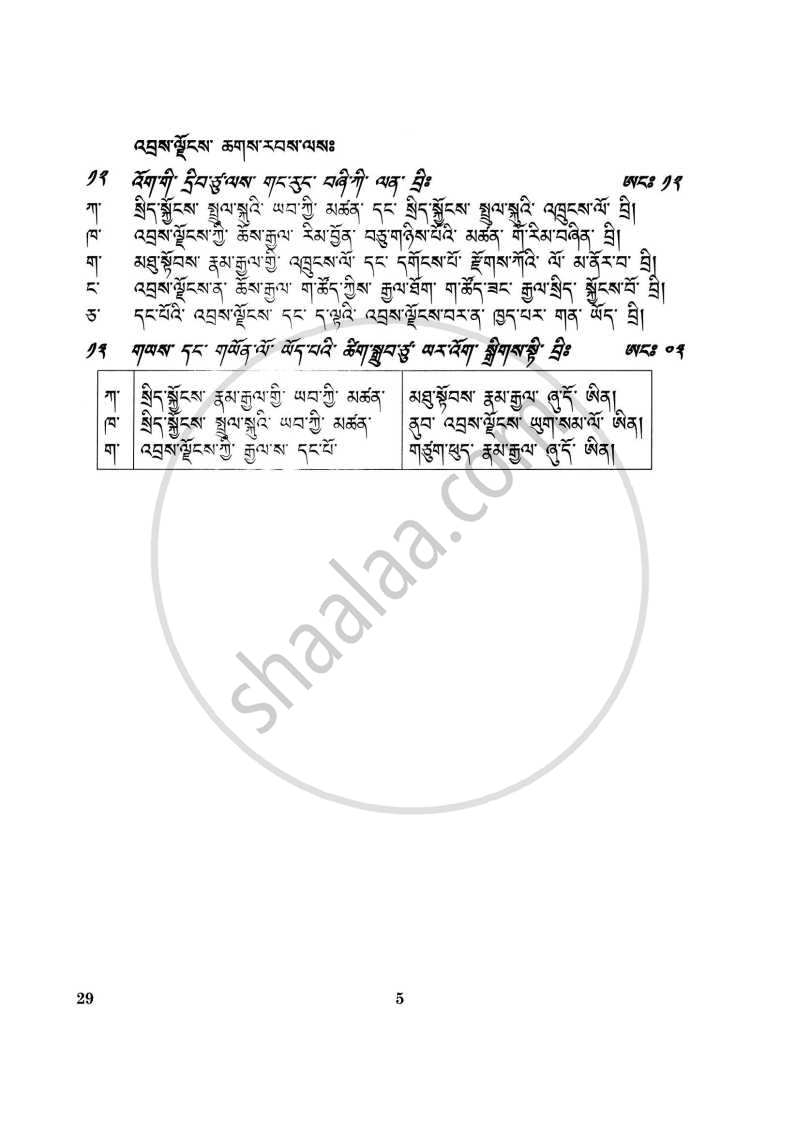 འབྲས་ལྗོངས་ ཆགས་རབས་ལསཿ
༡༢ འོག་གི་ དྲིབ་ཙུ་ལས་ གང་རུང་ བཞི་ཀི་ ལན་ བྲིཿ ཨངཿ ༡༢
ཀ་ སྲིད་སྐྱོངས་ སྤྲུལ་སྐུའི་ ཡབ་ཀྱི་ མཚན་ དང་ སྲིད་སྐྱོངས་ སྤྲུལ་སྐུའི་ འཁྲུངས་ལོ་ བྲི།
ཁ་ འབྲས་ལྗོངས་ཀྱི་ ཆོས་རྒྱལ་ རིམ་བྱོན་ བཅུ་གཉིས་པོའི་ མཚན་ གོ་རིམ་བཞིན་ བྲི།
ག་ མཐུ་སྟོབས་ རྣམ་རྒྱལ་གྱི་ འཁྲུངས་ལོ་ དང་ དགོངས་པོ་ རྫོགས་ཀོའི་ ལོ་ མ་ནོར་བ་ བྲི།
ང་ འབྲས་ལྗོངས་ན་ ཆོས་རྒྱལ་ ག་ཚོད་ཀྱིས་ རྒྱལ་ཐོག་ ག་ཚོད་ཟང་ རྒྱལ་སྲིད་ སྐྱོངས་བོ་ བྲི།
ཅ་ དང་པོའི་ འབྲས་ལྗོངས་ དང་ ད་ལྟའི་ འབྲས་ལྗོངས་བར་ན་ ཁྱད་པར་ གན་ ཡོད་ བྲི།
༡༣ གཡས་ དང་ གཡོན་ལོ་ ཡོད་པའི་ ཚིག་སྒྲུབ་ཙུ་ ཡར་འོག་ སྒྲིགས་སྟི་ བྲིཿ ཨངཿ ༠༣
ཀ་ སྲིད་སྐྱོངས་ རྣམ་རྒྱལ་གྱི་ ཡབ་ཀྱི་ མཚན་ མཐུ་སྟོབས་ རྣམ་རྒྱལ་ ཞུ་དོ་ ཨིན།
ཁ་ སྲིད་སྐྱོངས་ སྤྲུལ་སྐུའི་ ཡབ་ཀྱི་ མཚན་ ནུབ་ འབྲས་ལྗོངས་ ཡུག་སམ་ལོ་ ཨིན།
ག་ འབྲས་ལྗོངས་ཀྱི་ རྒྱལ་ས་ དང་པོ་ གཙུག་ཕུད་ རྣམ་རྒྱལ་ ཞུ་དོ་ ཨིན།
shaalaa.com
29 5